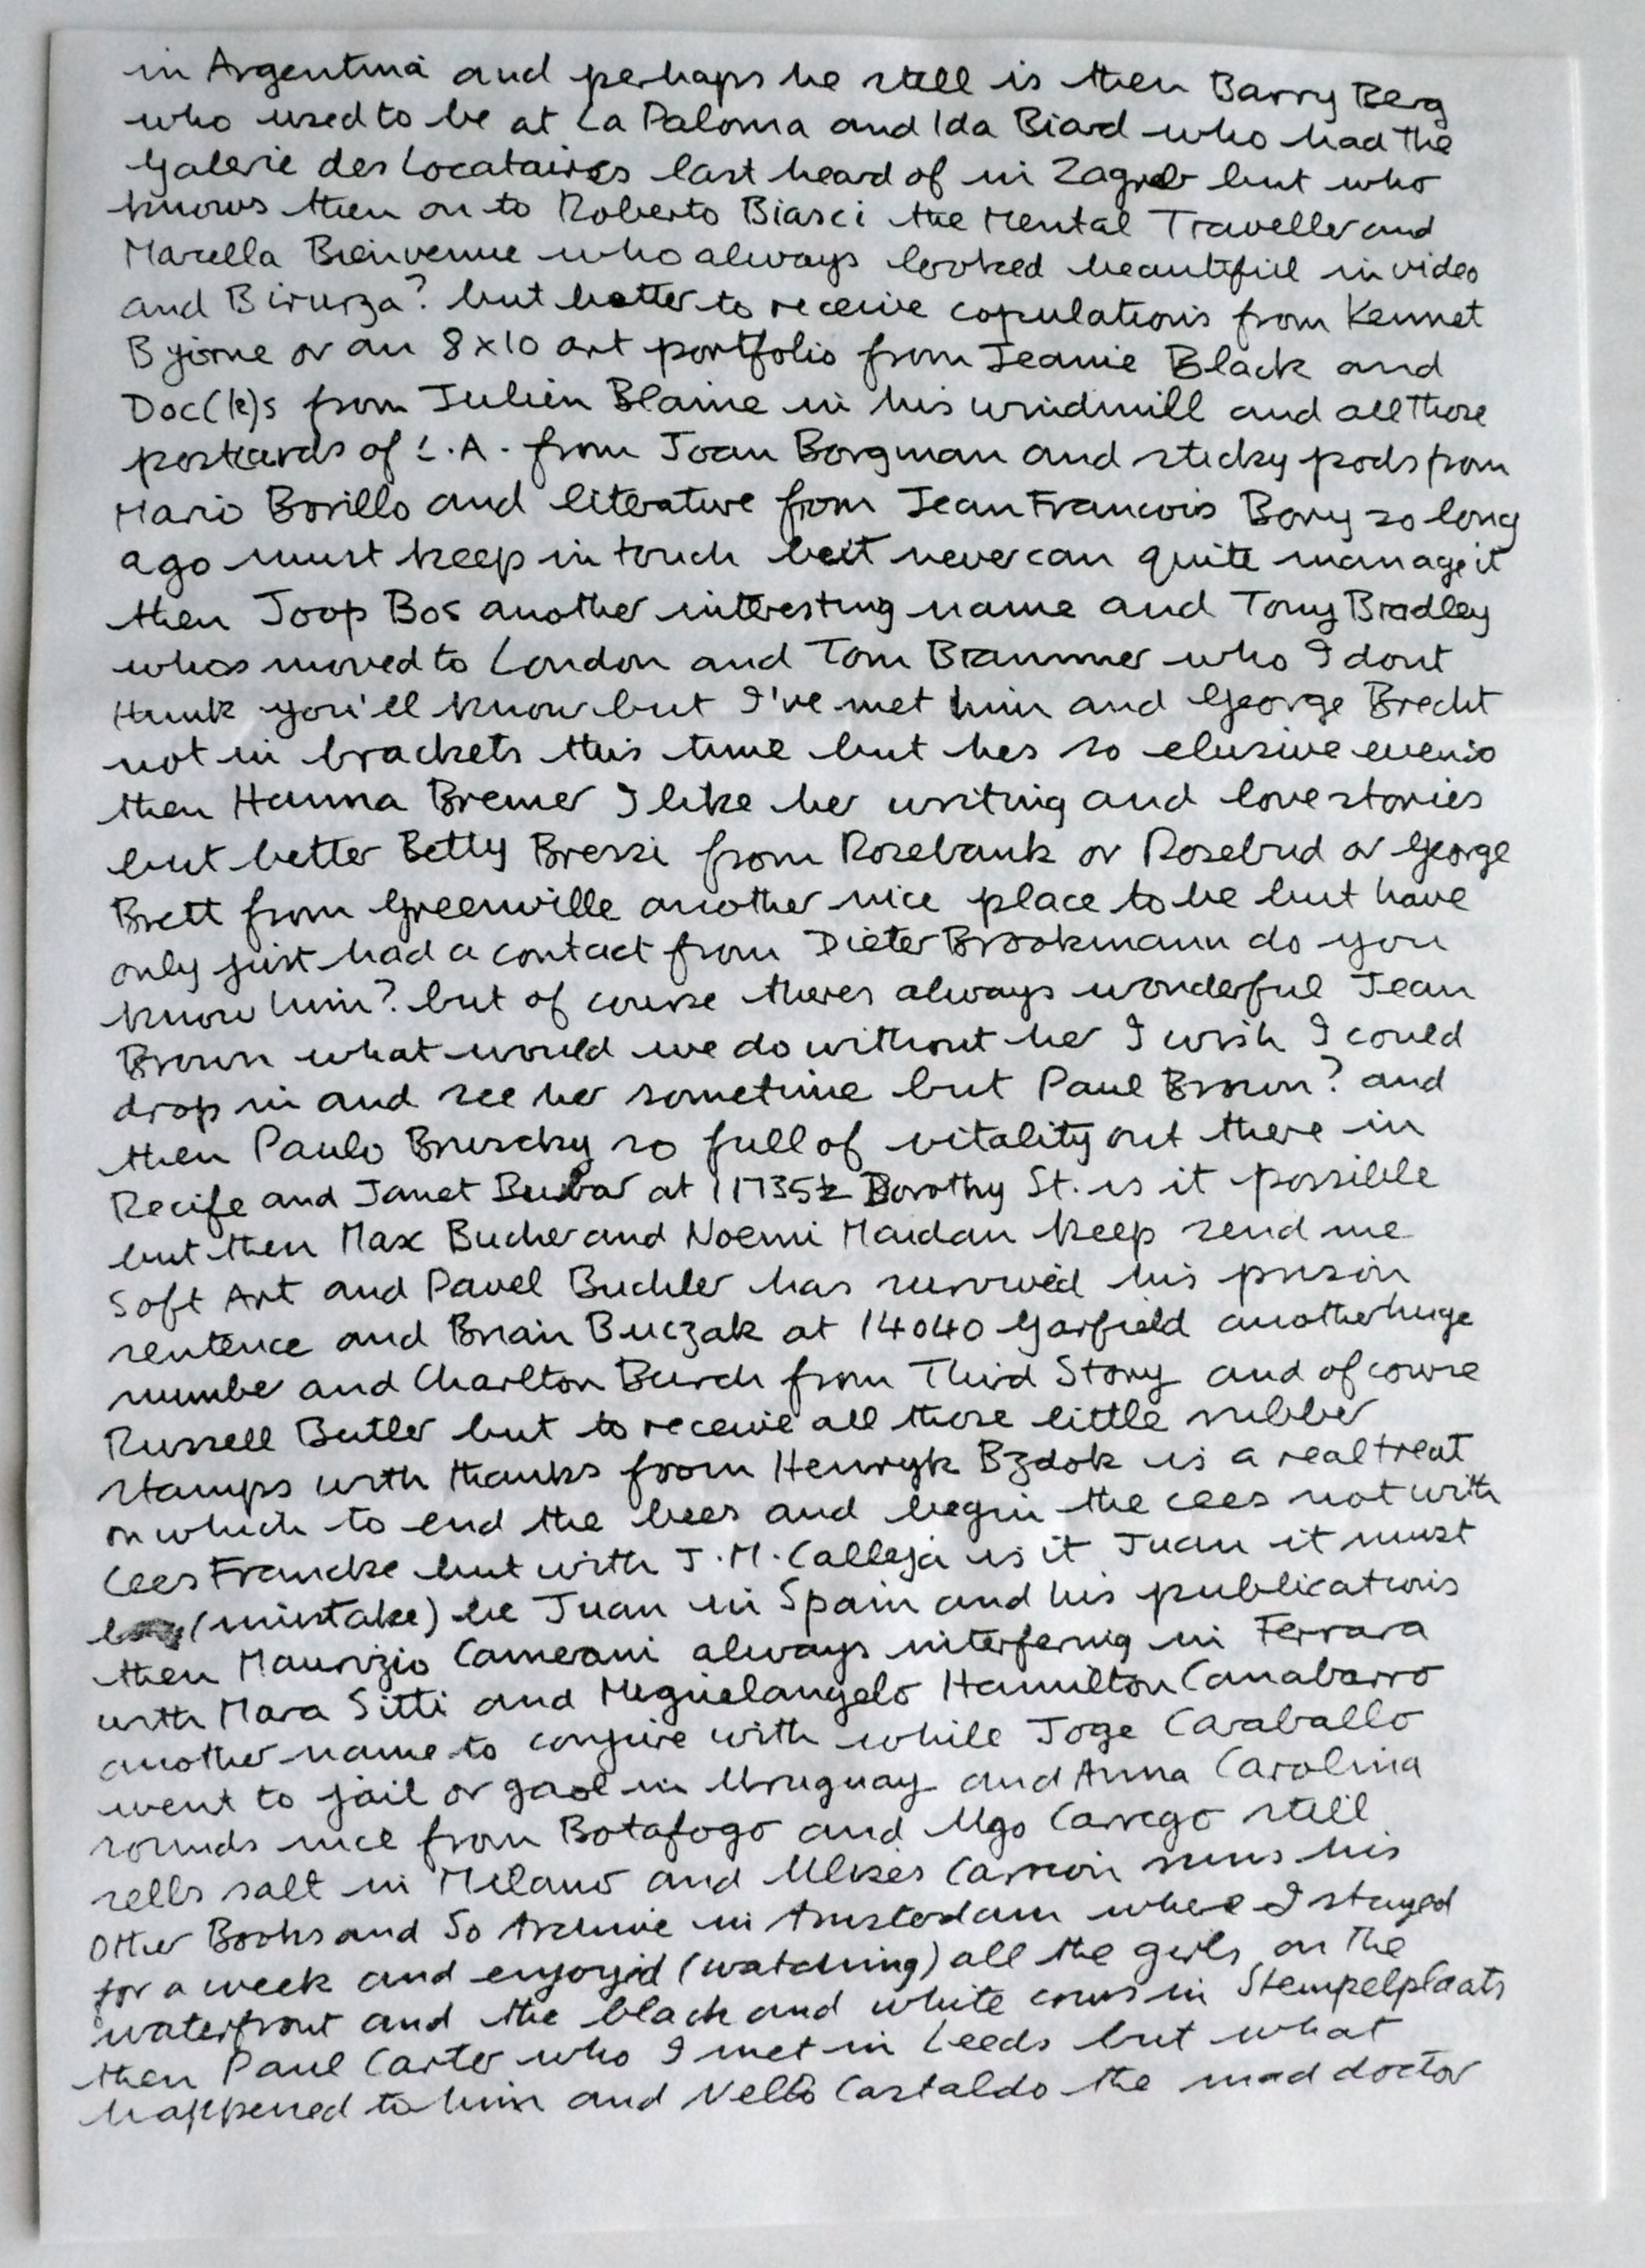 in Argentina and perhaps he still is then Barry Berg
who used to be at La Paloma and Ida Biard who had the
Galerie des Locataires last heard of in Zagreb but who
knows then on to Roberto Biasci the Mental Traveller and
Marella Bienvenue who always looked beautiful in video
and Birurza? but better to receive copulations from Kennet
Bjorne or an 8x10 art portfolio from Jeanie Black and
Doc(k)s from Julien Blaine in his windmill and all those
postcards of L.A. from Joan Borgman and sticky pods from
Mario Borillo and literature from Jean Francois Bory so long
ago must keep in touch but never can quite manage it
then Joop Bos another interesting name and Tony Bradley
whos moved to London and Tom Brammer who I dont
think you'll know but I've met him and George Brecht
not in brackets this time but hes so elusive even so
then Hanna Bremer I like her writing and love stories
but better Betty Bressi from Rosebank or Rosebud or George
Brett from Greenville another nice place to be but have
only just had a contact from Dieter Brookmann do you
know him? but of course theres always wonderful Jean
Brown what would we do without her I wish I could
drop in and see her sometime but Paul Brown? and
then Paulo Bruscky so full of vitality out there in
Recife and Janet at 11735½ Dorothy St. is it possible
but then Max Bucher and Noemi Maidan keep send me
Soft Art and Pavel Buchler has survived his prison
sentence and Brian Buczak at 14040 Garfield another huge
number and Charlton Burch from Third Story and of course
Russell Butler but to receive all those little rubber
stamps with thanks from Henryk Bzdok is a real treat
on which to end the bees and begin the cees not with
Cees Francke but with J.M. Calleja is it Juan it must
(mistake) be Juan in Spain and his publications
then Maurizio Camerani always interfering in Ferrara
with Mara Sitti and Miguelangelo Hamilton Canabarro
another name to conjure with while Joge Caraballo
went to jail or gaol in Uruguay and Anna Carolina
sounds nice from Botafogo and Ugo Carrego still
sells salt in Milano and Ulises Carrion runs his
Other Books and So Archive in Amsterdam where I stayed
for a week and enjoyed (watching) all the girls on the
waterfront and the black and white cows in Stempelplaats
then Paul Carter who I met in Leeds but what
happened to him and Nello Castaldo the mad doctor